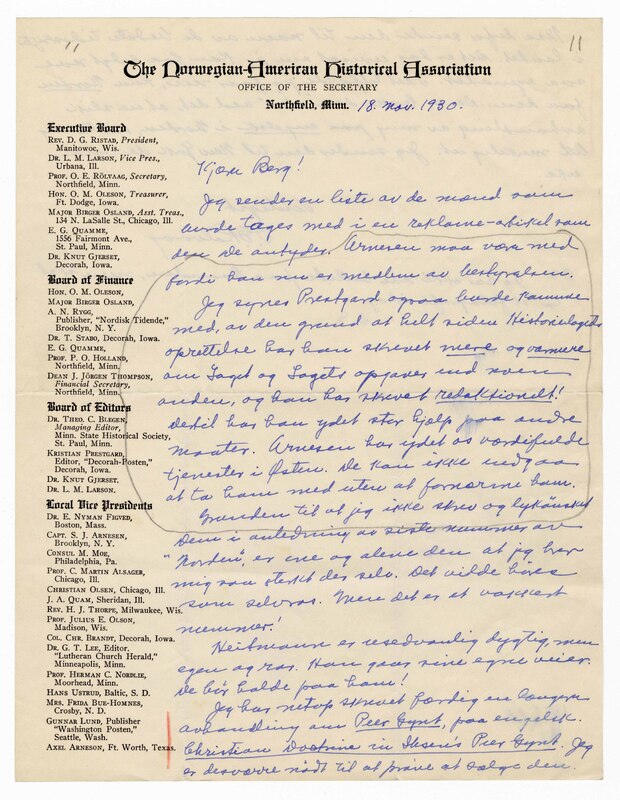 11
11
The Norwegian-American Historical Association
OFFICE OF THE SECRETARY
Northfield, Minn. 18. nov. 1930.
Executive Board
REV. D. G. RISTAD, President,
Manitowoc, Wis.
DR. L. M. LARSON, Vice Pres.,
Urbana, Ill.
PROF. O. E. RÖLVAAG, Secretary,
Northfield, Minn.
HON. O. M. OLESON, Treasurer,
Ft. Dodge, Iowa.
MAJOR BIRGER OSLAND, Asst. Treas.,
134 N. LaSalle St., Chicago, Ill.
E. G. QUAMME,
1556 Fairmont Ave.,
St. Paul, Minn.
DR. KNUT GJERSET,
Decorah, Iowa.
Board of Finance
HON. O. M. OLESON,
MAJOR BIRGER OSLAND,
A. N. RYGG,
Publisher, "Nordisk Tidende,"
Brooklyn, N. Y.
DR. T. STABO, Decorah, Iowa.
E. G. QUAMME,
PROF. P. O. HOLLAND,
Northfield, Minn.
DEAN J. JÖRGEN THOMPSON,
Financial Secretary,
Northfield, Minn.
Board of Editors
DR. THEO. C. BLEGEN,
Managing Editor,
Minn. State Historical Society,
St. Paul, Minn.
KRISTIAN PRESTGARD,
Editor, "Decorah-Posten,"
Decorah, Iowa.
DR. KNUT GJERSET.
DR. L. M. LARSON.
Local Vice Presidents
DR. E. NYMAN FIGVED,
Boston, Mass.
CAPT. S. J. ARNESEN,
Brooklyn, N. Y.
CONSUL M. MOE,
Philadelphia, Pa.
PROF. C. MARTIN ALSAGER,
Chicago, Ill.
CHRISTIAN OLSEN, Chicago, Ill.
J. A. QUAM, Sheridan, Ill.
REV. H. J. THORPE, Milwaukee, Wis.
PROF. JULIUS E. OLSON,
Madison, Wis.
COL. CHR. BRANDT, Decorah, Iowa.
DR. G. T. LEE, Editor,
"Lutheran Church Herald,"
Minneapolis, Minn.
PROF. HERMAN C. NORDLIE,
Moorhead, Minn.
HANS USTRUD, Baltic, S. D.
MRS. FRIDA BUE-HOMNES,
Crosby, N. D.
GUNNAR LUND, Publisher
"Washington Posten,"
Seattle, Wash.
AXEL ARNESON, Ft. Worth, Texas.
Kjære Berg!
Jeg sender en liste av de mænd som
burde tages med i en reklame-artikel som
den De antyder. Arnesen maa være med
fordi han nu er medlem av bestyrelsen.
Jeg synes Prestgard ogsaa burde komme
med, av den grund at helt siden Historielagets
oprettelse har han skrevet mere og varmere
om Laget og Lagets opgaver end noen
anden, og han har skrevet redaktionelt!
Dertil har han ydet stor hjelp paa andre
maater. Arnesen har ydet os værdifulde
tjenester i Østen. De kan ikke undgaa
at ta ham med uten at fornærme ham.
Grunden til at jeg ikke skrev og lykønsket
Dem i anledning av siste nummer av
"Norden", er ene og alene den at jeg har
mig saa sterkt der selv. Det vilde høres
som selvros. Men det er et vakkert
nummer!
Heitmann er usedvanlig dygtig, men
egen og rar. Han gaar sine egne veier.
De bør holde paa ham!
Jeg har netop skrevet færdig en længere
avhandling om Peer Gynt, paa engelsk.
Christian Doctrine in Ibsen's Peer Gynt. Jeg
er desværre nødt til at prøve at sælge den.